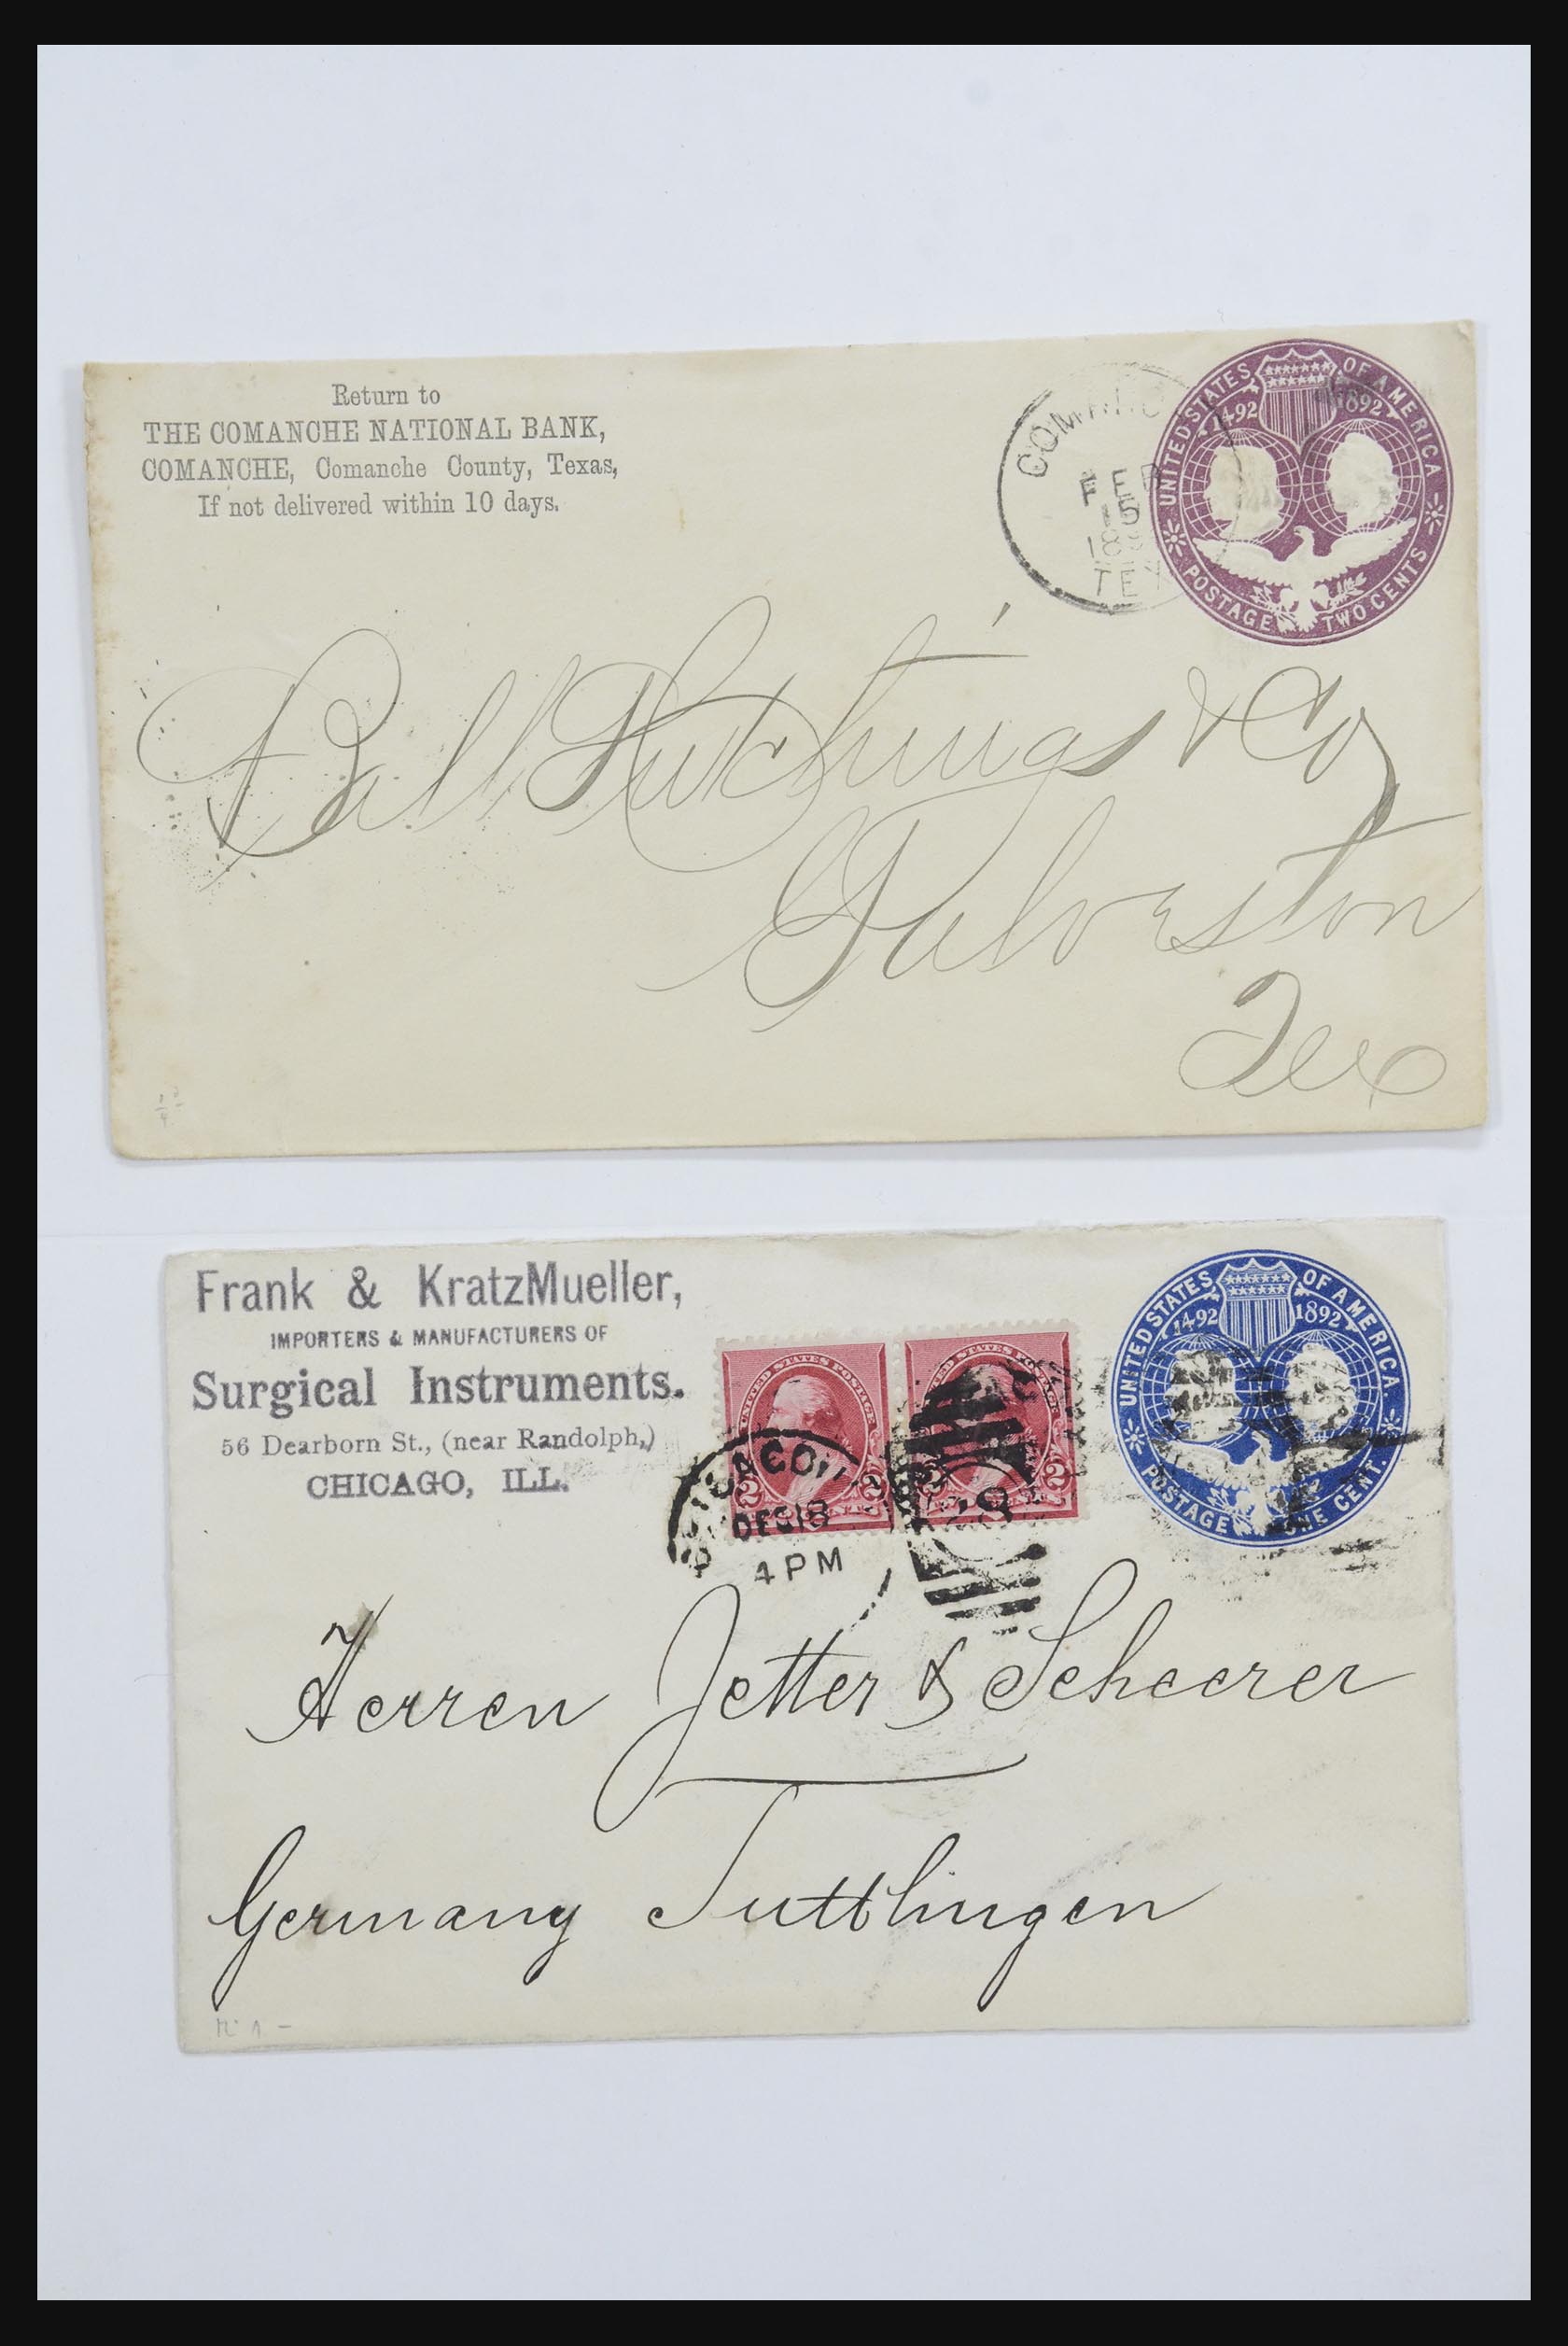 Return to
THE COMANCHE NATIONAL BANK,
COMANCHE, Comanche County, Texas,
If not delivered within 10 days.
FEB
5
TEX
UNITED STATES OF AMERICA
1492 1892
POSTAGE TWO CENTS
Ball Hutchings & Co
Galveston
Tex
Frank & KratzMueller,
IMPORTERS & MANUFACTURERS OF
Surgical Instruments.
56 Dearborn St., (near Randolph,)
CHICAGO, ILL.
UNITED STATES POSTAGE
2 2
CENTS
UNITED STATES POSTAGE
2
CHICAGO, ILL
DEC 18
4 PM
28
UNITED STATES OF AMERICA
1492 1892
POSTAGE ONE CENT.
Herren Jetter & Scheerer
Germany Tuttlingen